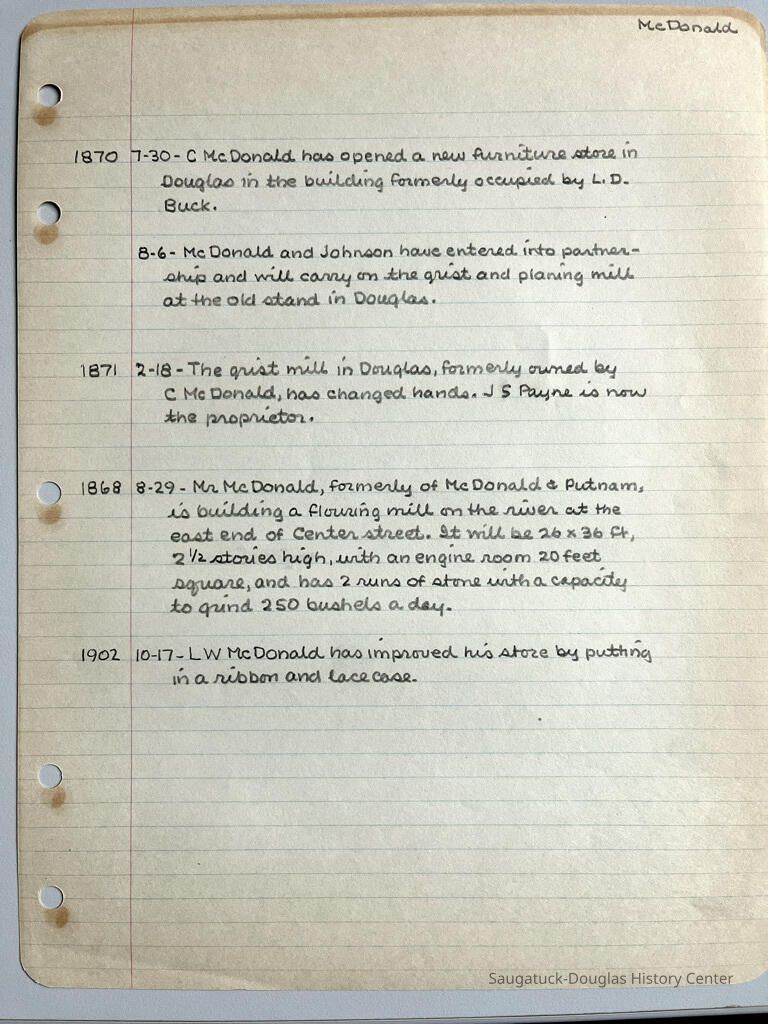 McDonald
1870 7-30- C McDonald has opened a new furniture store in
Douglas in the building formerly occupied by L.D.
Buck.
8-6- McDonald and Johnson have entered into partner-
ship and will carry on the grist and planing mill
at the old stand in Douglas.
1871 2-18- The grist mill in Douglas, formerly owned by
C McDonald, has changed hands. J S Payne is now
the proprietor.
1868 8-29- Mr McDonald, formerly of McDonald & Putnam,
is building a flouring mill on the river at the
east end of Center street. It will be 26 x 36 ft,
2 1/2 stories high, with an engine room 20 feet
square, and has 2 runs of stone with a capacity
to grind 250 bushels a day.
1902 10-17- L W McDonald has improved his store by putting
in a ribbon and lace case.
Saugatuck-Douglas History Center